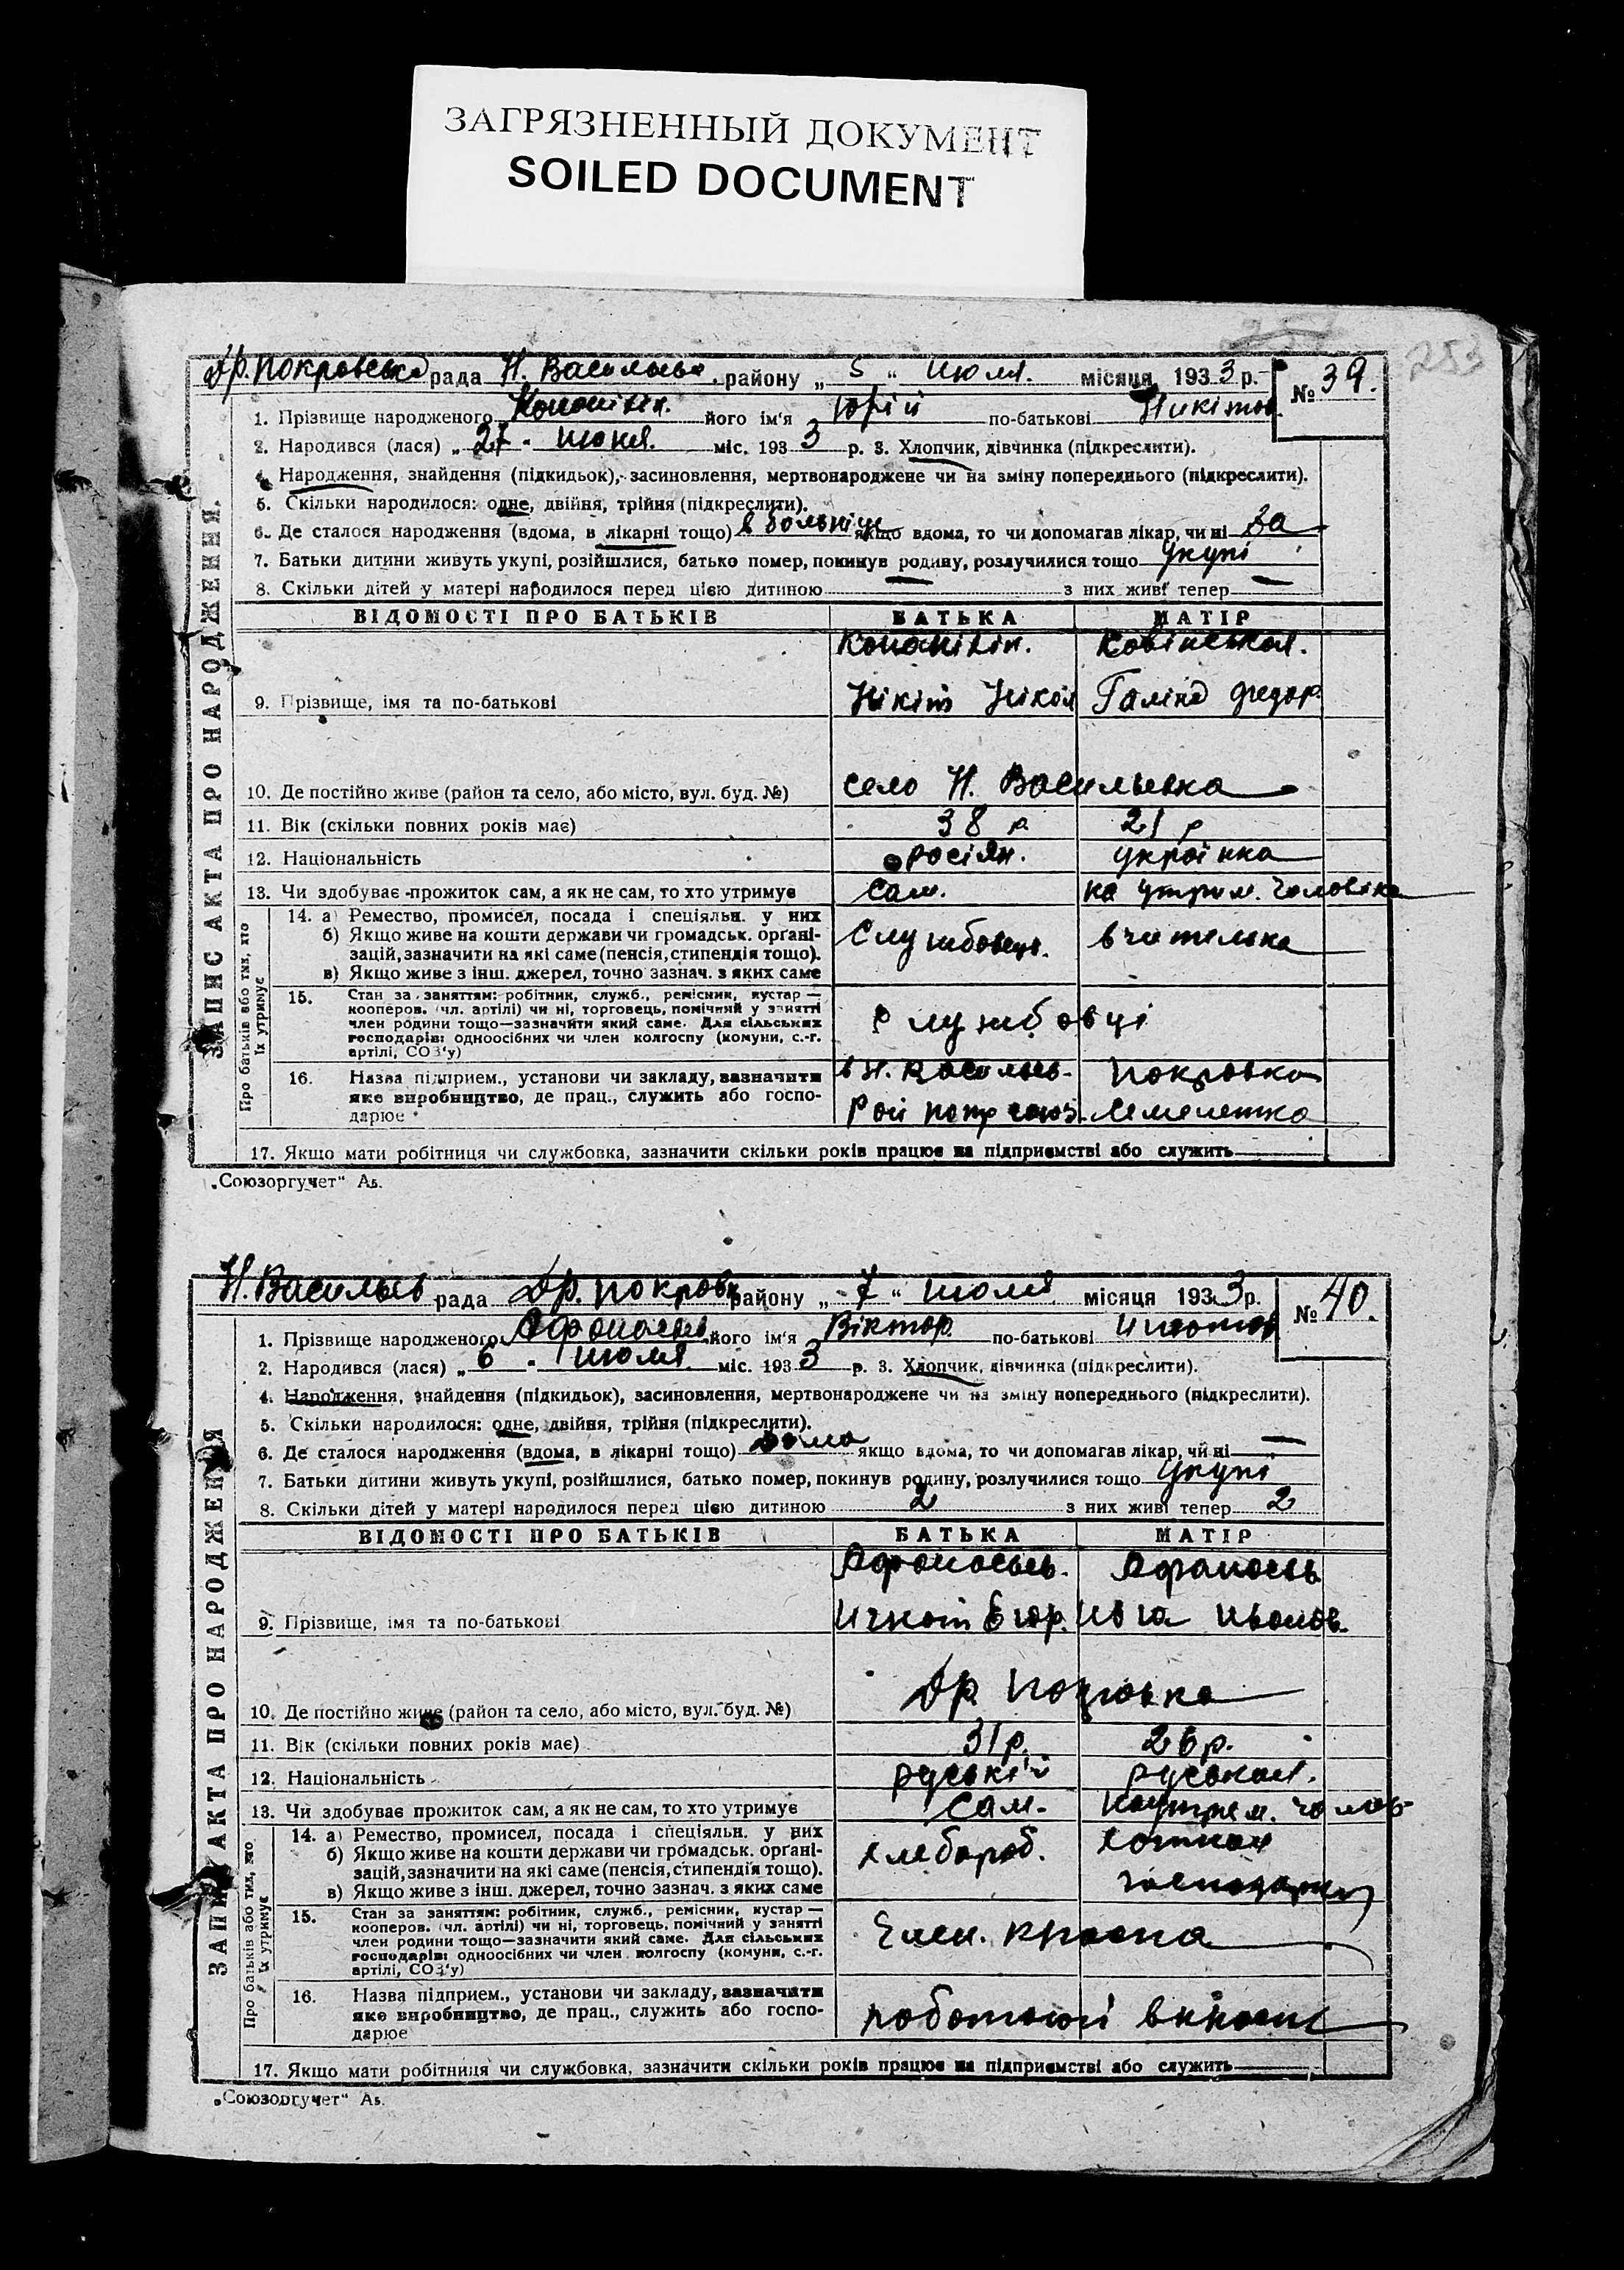 ЗАГРЯЗНЕННЫЙ ДОКУМЕНТ
SOILED DOCUMENT
253
Др. Покровська рада Н. Васильев. району „ 5 “ июля. місяця 1933 р. № 39.
ЗАПИС АКТА ПРО НАРОДЖЕННЯ.
1. Прізвище народженого його ім'я Юрій по-батькові Никітов
2. Народився (лася) „ 27 " июня. міс. 1933 р. 3. Хлопчик, дівчинка (підкреслити).
4. Народження, знайдення (підкидьок), засиновлення, мертвонароджене чи на зміну попереднього (підкреслити).
5. Скільки народилося: одне, двійня, трійня (підкреслити).
6. Де сталося народження (вдома, в лікарні тощо) в больніце якщо вдома, то чи допомагав лікар, чи ні
7. Батьки дитини живуть укупі, розійшлися, батько помер, покинув родину, розлучилися тощо укупі
8. Скільки дітей у матері народилося перед цією дитиною з них живі тепер —
ВІДОМОСТІ ПРО БАТЬКІВ БАТЬКА МАТІР
Ковінськая.
9. Прізвище, імя та по-батькові Нікіт Нікол Галіна Федор.
10. Де постійно живе (район та село, або місто, вул. буд. №) село Н. Васильевка
11. Вік (скільки повних років має) 38 р. 21 р
12. Національність росіян. українка
13. Чи здобуває прожиток сам, а як не сам, то хто утримує сам. на утрим. чоловіка
Про батьків або тих, хто їх утримує
14. а) Ремество, промисел, посада і спеціяльн. у них
б) Якщо живе на кошти держави чи громадськ. органі-
зацій, зазначити на які саме (пенсія, стипендія тощо).
в) Якщо живе з інш. джерел, точно зазнач. з яких саме
Службовець. вчителька
15. Стан за заняттям: робітник, служб., ремісник, кустар —
кооперов. (чл. артілі) чи ні, торговець, помічний у занятті
член родини тощо—зазначити який саме. Для сільських
господарів: одноосібних чи член колгоспу (комуни, с.-г.
артілі, СОЗ'у)
Службовці
16. Назва підприєм., установи чи закладу, зазначити
яке виробництво, де прац., служить або госпо-
дарює
в Н. Василев. Покровка
Рай потр союз. Семилетка
17. Якщо мати робітниця чи службовка, зазначити скільки років працює на підприємстві або служить
„Союзоргучет“ А5.
Н. Васильев рада Др. Покров району „ 7 “ июля місяця 1933 р. № 40.
ЗАПИС АКТА ПРО НАРОДЖЕННЯ
1. Прізвище народженого Афонасьев його ім'я Віктор. по-батькові
2. Народився (лася) „ 6 " июля. міс. 1933 р. 3. Хлопчик, дівчинка (підкреслити).
4. Народження, знайдення (підкидьок), засиновлення, мертвонароджене чи на зміну попереднього (підкреслити).
5. Скільки народилося: одне, двійня, трійня (підкреслити).
6. Де сталося народження (вдома, в лікарні тощо) дома якщо вдома, то чи допомагав лікар, чи ні —
7. Батьки дитини живуть укупі, розійшлися, батько помер, покинув родину, розлучилися тощо укупі
8. Скільки дітей у матері народилося перед цією дитиною 2 з них живі тепер 2
ВІДОМОСТІ ПРО БАТЬКІВ БАТЬКА МАТІР
Афонасьев. Афанасев
9. Прізвище, імя та по-батькові Игнат Егор. Иванов.
10. Де постійно живе (район та село, або місто, вул. буд. №) Др. Покровка
11. Вік (скільки повних років має) 31 р. 26 р.
12. Національність руській руськая.
13. Чи здобуває прожиток сам, а як не сам, то хто утримує сам. на утрим. чолов
Про батьків або тих, хто їх утримує
14. а) Ремество, промисел, посада і спеціяльн. у них
б) Якщо живе на кошти держави чи громадськ. органі-
зацій, зазначити на які саме (пенсія, стипендія тощо).
в) Якщо живе з інш. джерел, точно зазнач. з яких саме
хлебороб.
15. Стан за заняттям: робітник, служб., ремісник, кустар —
кооперов. (чл. артілі) чи ні, торговець, помічний у занятті
член родини тощо—зазначити який саме. Для сільських
господарів: одноосібних чи член колгоспу (комуни, с.-г.
артілі, СОЗ'у)
Член.
16. Назва підприєм., установи чи закладу, зазначити
яке виробництво, де прац., служить або госпо-
дарює
17. Якщо мати робітниця чи службовка, зазначити скільки років працює на підприємстві або служить
„Союзоргучет“ А5.